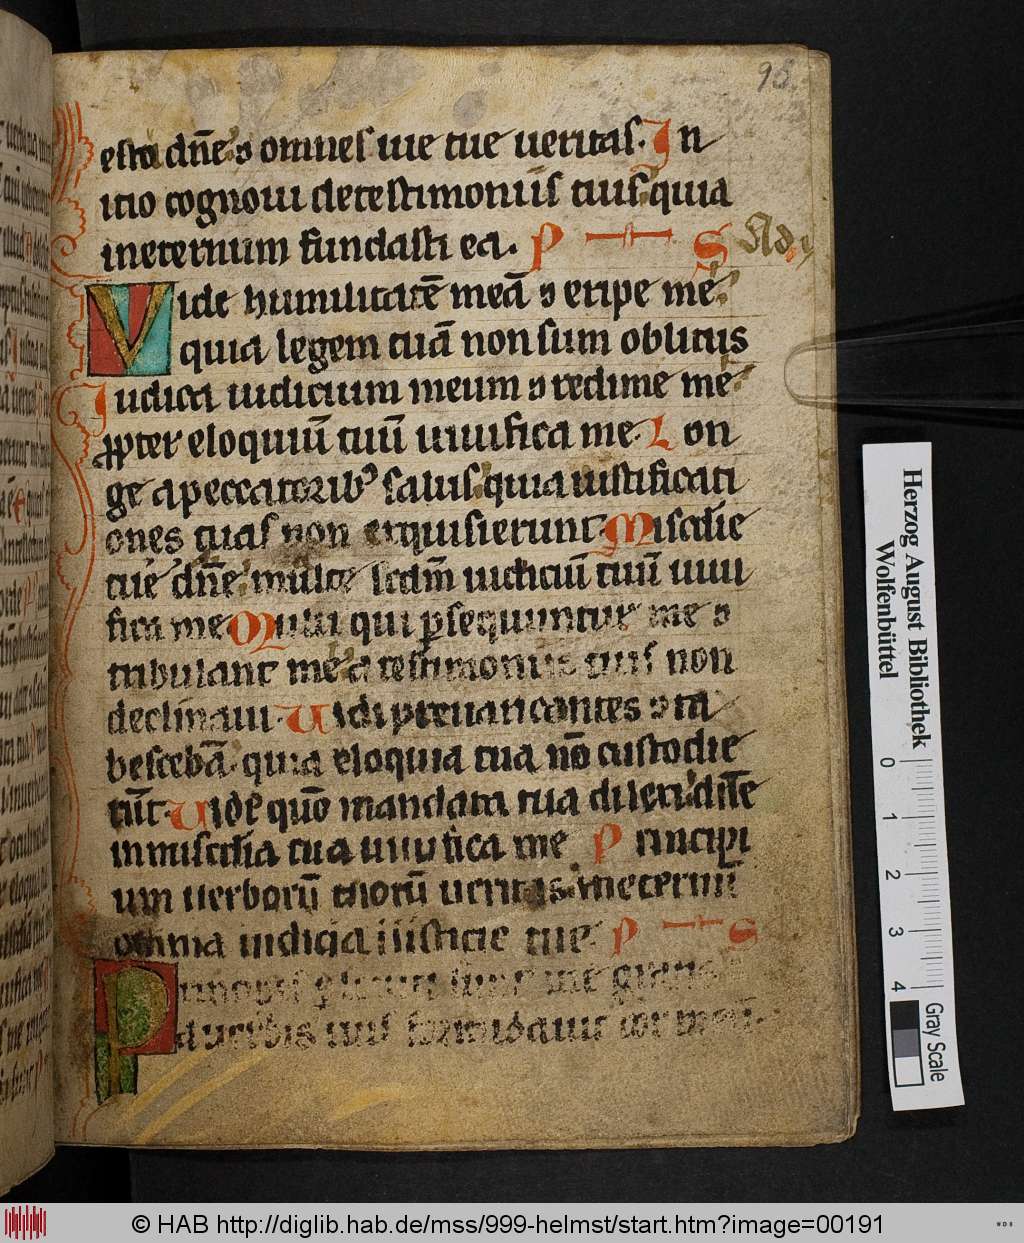 98
esto dn̄e ⁊ omnes uie tue ueritas. In
itio cognoui detestimoniis tuis quia
ineternum fundasti ea. P S Ad
Vide humilitatē meā ⁊ eripe me
quia legem tuā non sum oblitus
Iudica iudicium meum ⁊ redime me
ꝓpter eloquiū tuū uiuifica me. Lon
ge a peccatorib⁹ salus quia iustificati
ones tuas non exquisierunt Miscd̄ie
tue dn̄e multe scdm̄ iudiciū tuū uiui
fica me Multi qui ꝑsequuntur me ⁊
tribulant me a testimoniis tuis non
declinaui. Uidi preuaricantes ⁊ ta
bescebā quia eloquia tua nō custodie
rūt. Uide quō mandata tua dilexi dn̄e
inmiscd̄ia tua uiuifica me Principi
um uerborū tuorū ueritas ineternū
omnia iudicia iusticie tue. P S
Principes me
a uerbis tuis formidauit cor meū.
Herzog August Bibliothek
Wolfenbüttel
0 1 2 3 4
Gray Scale
© HAB http://diglib.hab.de/mss/999-helmst/start.htm?image=00191